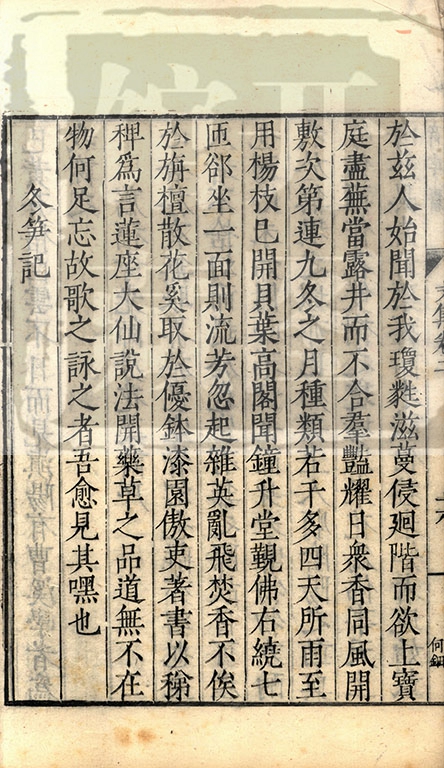 於茲人始聞於我瓊滋蔓侵廻階而欲上寶
庭盡蕪當露井而不合羣豔耀日衆香同風開
敷次第連九冬之月種類若干多四天所雨至
用楊枝已開貝葉高閣聞鐘升堂覲佛右繞七
匝郤坐一面則流芳忽起雜英亂飛焚香不俟
於旃檀散花奚取於優鉢漆園傲吏著書以稊
稗爲言蓮座大仙說法開藥草之品道無不在
物何足忘故歌之詠之者吾愈見其嘿也
冬笋記